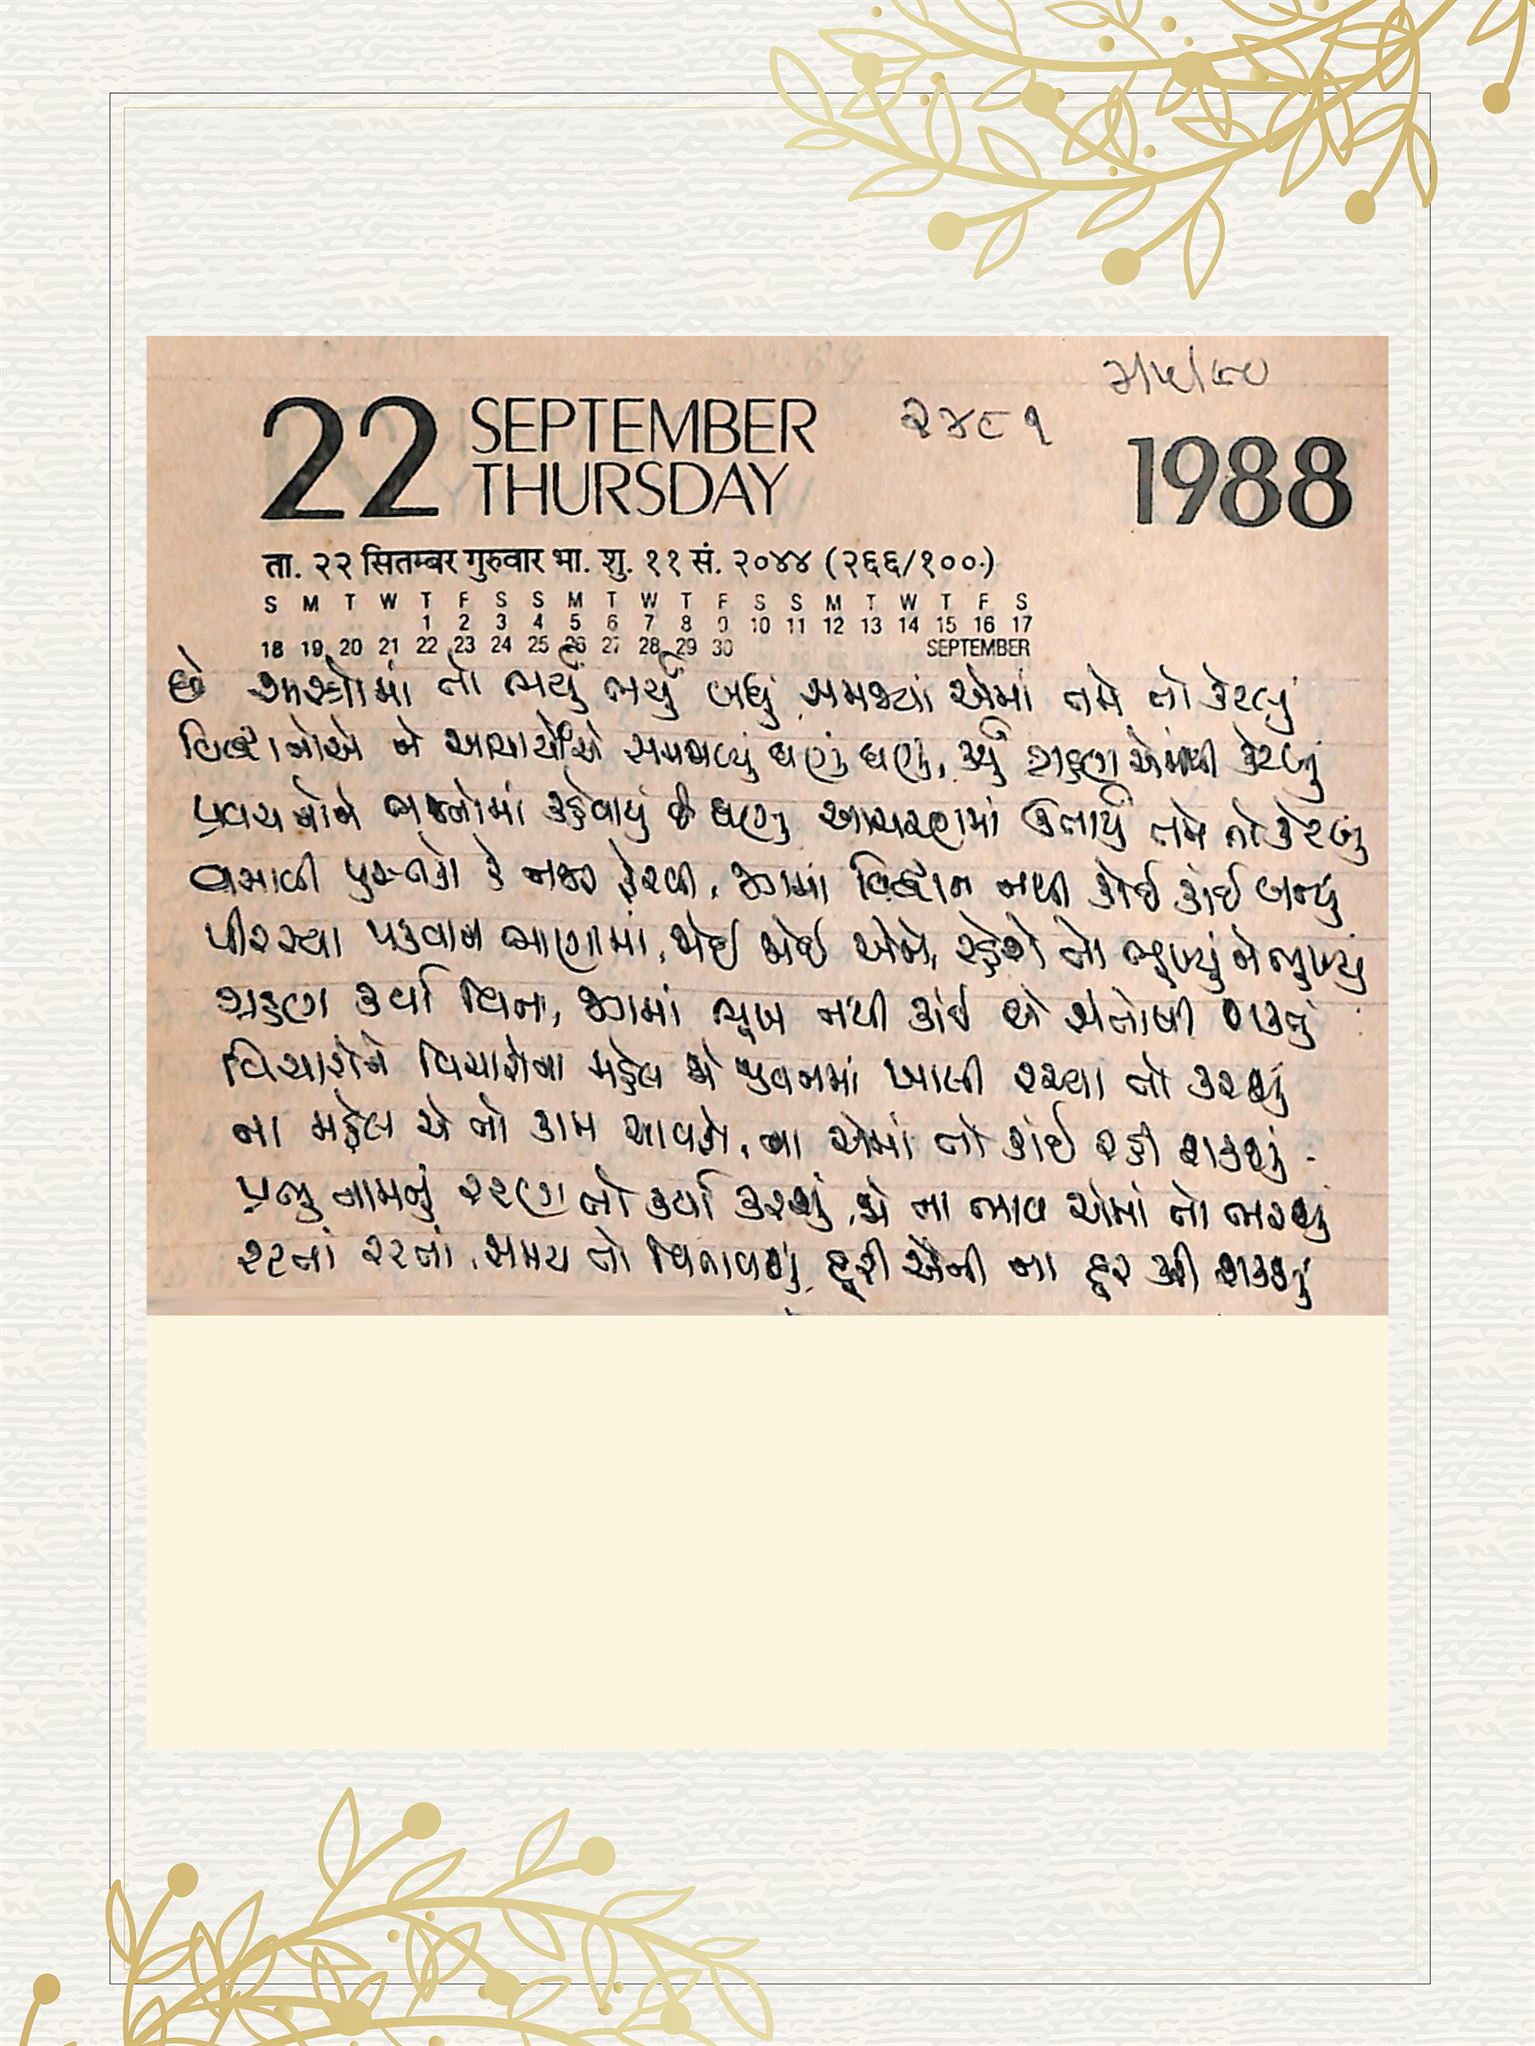 ૩/૫/૯૦
૨૪૮૧
22 SEPTEMBER
THURSDAY
1988
ता. २२ सितम्बर गुरुवार भा. शु. ११ सं. २०४४ (२६६/१००)
S M T W T F S S M T W T F S S M T W T F S
1 2 3 4 5 6 7 8 9 10 11 12 13 14 15 16 17
18 19 20 21 22 23 24 25 26 27 28 29 30 SEPTEMBER
છે શાસ્ત્રોમાં તો ભર્યું ભર્યું બધું સમજ્યાં એમાં તમે તો કેટલું
વિદ્વાનોએ ને આચાર્યોએ સમજાવ્યું ઘણું ઘણું, કર્યું ગ્રહણ એમાંથી કેટલું
પ્રવચનોને ભજનોમાં કહેવાયું છે ઘણું આચરણમાં ઉતાર્યું તમે તો કેટલું
પુસ્તકો કે નજર ફેરવી, જગમાં વિદ્વાન નથી કોઈ કાંઈ બન્યું
પીરસ્યા પકવાન ભાણામાં, જોઈ જોઈ એને, રહેશે તો ભૂખ્યું ને ભૂખ્યું
ગ્રહણ કર્યા વિના, જગમાં ભૂખ નથી કાંઈ એ સંતોષી શકતું
વિચારોને વિચારોના મહેલ જો જીવનમાં ખાલી રચ્યા તો કરશું
ના મહેલ એ તો કામ આવશે, ના એમાં તો કાંઈ રહી શકશું
પ્રભુ નામનું રટણ તો કર્યા કરશું, જો ના ભાવ એમાં તો ભરશું
રટતાં રટતાં, સમય તો વિતાવશું દૂરી એની ના દૂર કરી શકશું